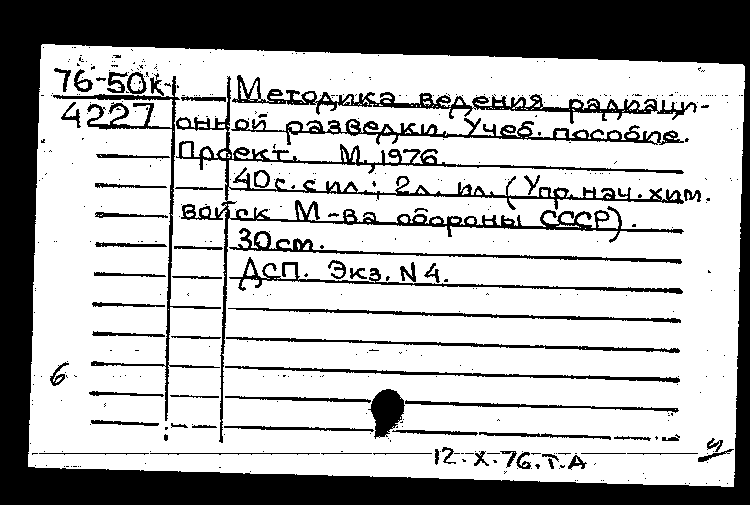 76-50к
4227
Методика ведения радиаци-
онной разведки. Учеб. пособие.
Проект. М., 1976.
40с. с ил.; 2л. ил. (Упр. нач. хим.
войск М-ва обороны СССР).
30см.
ДСП. Экз. N 4.
6
12.X.76.Т.А